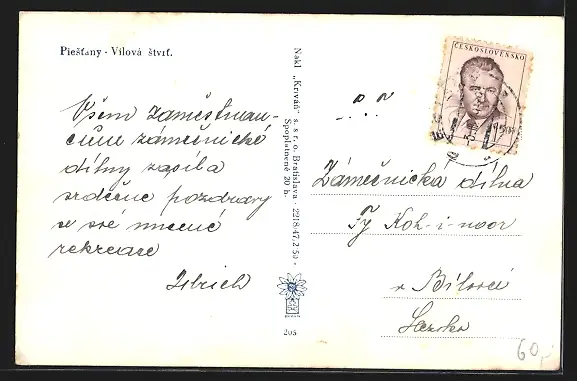 Piešťany - Vilová štvrť.
Všem zaměstnan-
cům zámečnické
dílny zasílá
srdečné pozdravy
se své nucené
rekreace
Nakl „Kriváň" s. s r. o. Bratislava - 2218-47.2·50 -
Spoplatnené 20 h.
205
ČESKOSLOVENSKO
Zámečnická dílna
Fy Koh-i-noor
v Bílovci
Slezsko
60,-